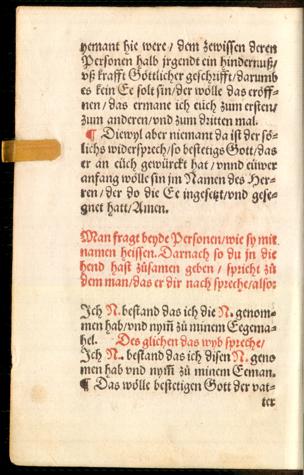 yemant hie were / dem zewissen deren
Personen halb jrgendt ein hindernuß /
vß krafft Göttlicher geschrifft / darumb
es kein Ee solt sin / der wölle das eröff⸗
nen / das ermane ich eüch zum ersten /
zum anderen / vnd zum dritten mal.
¶ Diewyl aber niemant da ist der söl⸗
lichs widersprech / so bestetigs Gott / das
er an eüch gewürckt hat / vnnd eüwer
anfang wölle sin jm Namen des Her⸗
ren / der do die Ee ingesetzt / vnd gese⸗
gnet hatt / Amen.
Man fragt beyde Personen / wie sy mit
namen heissen. Darnach so du jn die
hend hast zůsamen geben / spricht zů
dem man / das er dir nach spreche / also:
Jch N. bestand das ich die N. genom⸗
men hab / vnd nym̃ zů minem Eegema⸗
hel. Des glichen das wyb spreche /
Jch N. bestand das ich disen N. geno
men hab vnd nym̃ zů minem Eeman.
¶ Das wölle bestetigen Gott der vat⸗
ter